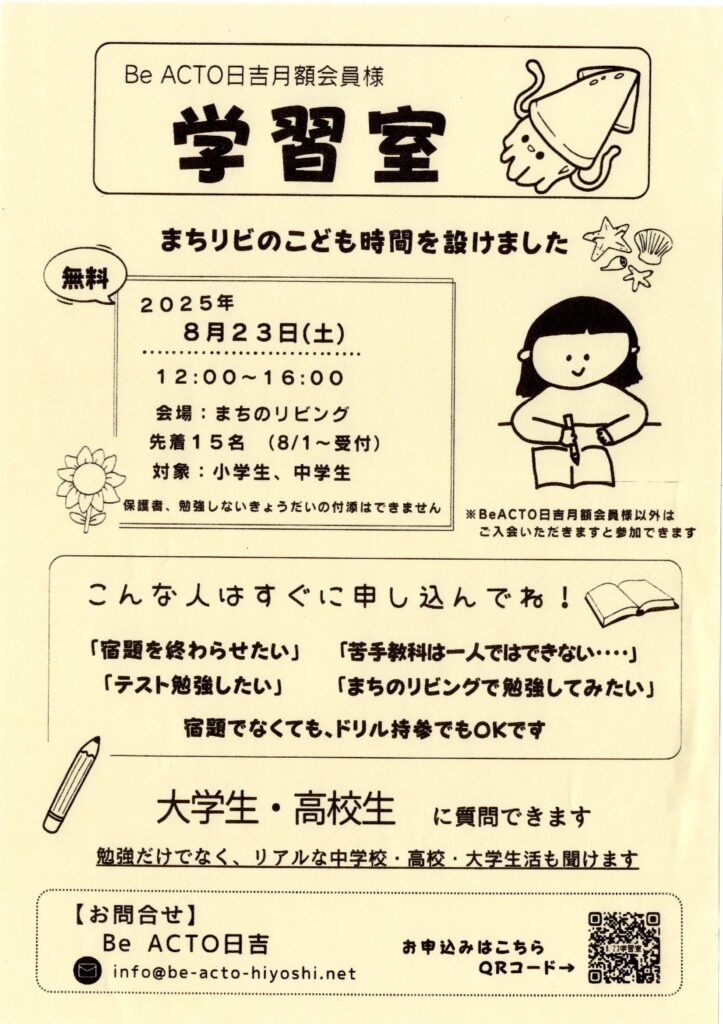 Be ACTO日吉月額会員様
学習室
まちリビのこども時間を設けました
無料
2025年
8月23日(土)
12:00～16:00
会場：まちのリビング
先着15名 (8/1～受付)
対象：小学生、中学生
保護者、勉強しないきょうだいの付添はできません
※BeACTO日吉月額会員様以外は
ご入会いただきますと参加できます
こんな人はすぐに申し込んでね！
「宿題を終わらせたい」 「苦手教科は一人ではできない‥‥」
「テスト勉強したい」 「まちのリビングで勉強してみたい」
宿題でなくても、ドリル持参でもOKです
大学生・高校生 に質問できます
勉強だけでなく、リアルな中学校・高校・大学生活も聞けます
【お問合せ】
Be ACTO日吉
info@be-acto-hiyoshi.net
お申込みはこちら
QRコード→